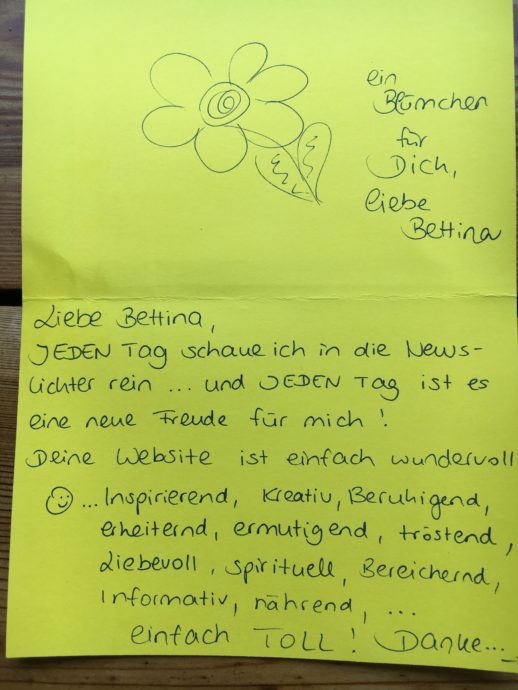 ein
Blümchen
für
Dich,
liebe
Bettina
Liebe Bettina,
JEDEN Tag schaue ich in die News-
lichter rein ... und JEDEN Tag ist es
eine neue Freude für mich!
Deine Website ist einfach wundervoll
☺ ... Inspirierend, kreativ, Beruhigend,
erheiternd, ermutigend, tröstend,
Liebevoll, spirituell, Bereichernd,
Informativ, nährend, ...
einfach TOLL! Danke...